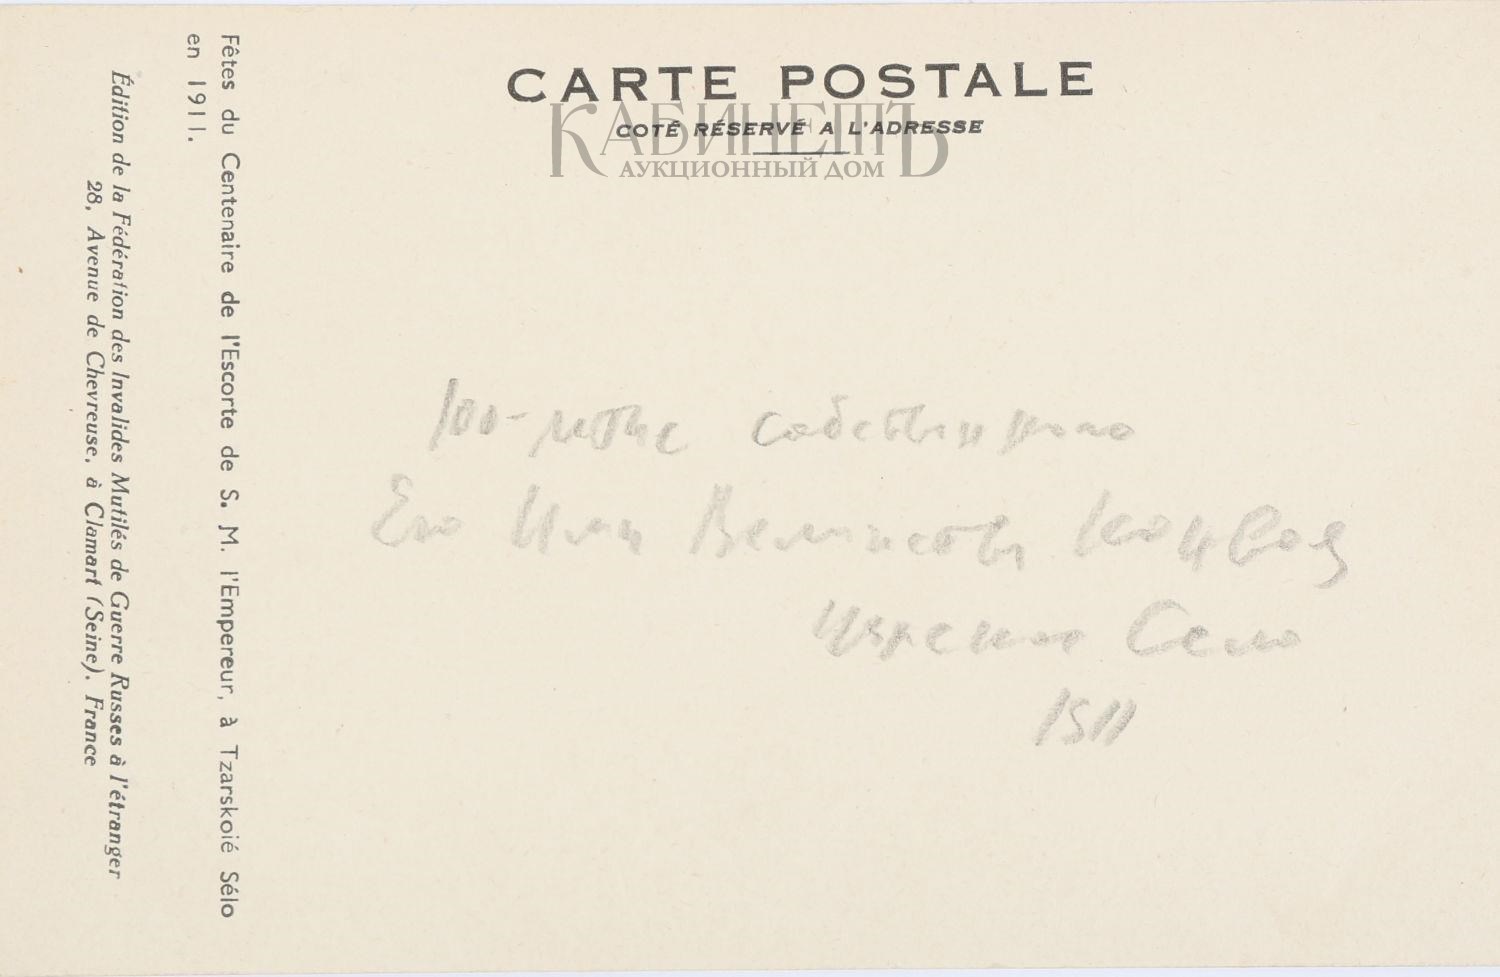 CARTE POSTALE
COTÉ RÉSERVÉ A L'ADRESSE
КАБИНЕТЪ
АУКЦИОННЫЙ ДОМ
Fêtes du Centenaire de l'Escorte de S. M. l'Empereur, à Tzarskoié Sélo
en 1911.
Édition de la Fédération des Invalides Mutilés de Guerre Russes à l'étranger
28, Avenue de Chevreuse, à Clamart (Seine). France
100-летие собственного
Его Имп Величеств Конвоя
Царское Село
1911